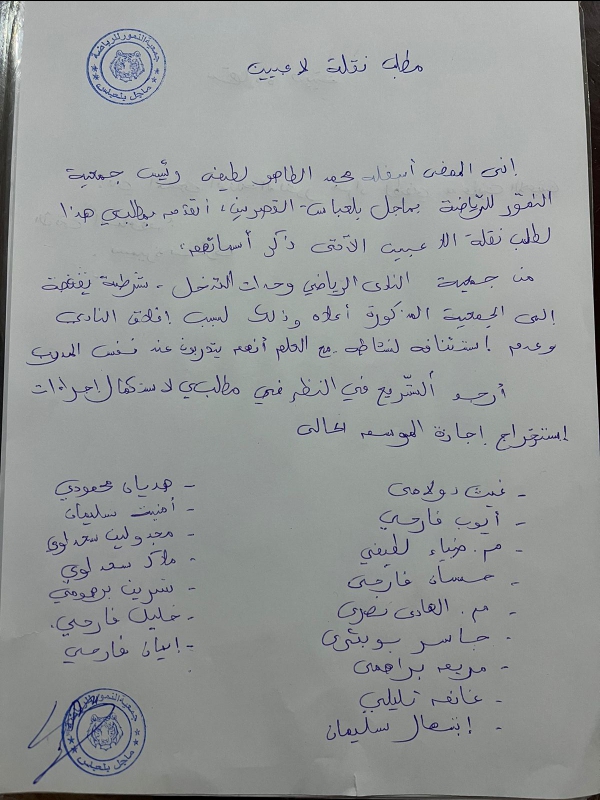 جمعية النمور للرياضة
ماجل بلعباس
مطلب نقلة لاعبين
إني الممضي أسفله محمد الطاهر لطيفي رئيس جمعية
النمور للرياضة بماجل بلعباس - القصرين، أتقدم بمطلبي هذا
لطلب نقلة اللاعبين الآتي ذكر أسمائهم:
من جمعية النادي الرياضي وحدات التدخل - شرطة بفقصة
إلى الجمعية المذكورة أعلاه وذلك لسبب إغلاق النادي
وعدم إستئنافه لنشاطه مع العلم أنهم يتدربون عند نفس المدرب
أرجو التسريع في النظر في مطلبي لاستكمال إجراءات
إستخراج إجازة الموسم الحالي
- غيث دولامي
- أيوب فارحي
- م. ضياء لطيفي
- حسان فارحي
- م. الهادي نصري
- جاسر بوبشري
- مريم براهمي
- غانم تليلي
- إبتهال سليمان
- هديان محمودي
- أمنيت سليمان
- مجدولين سعداوي
- ملاك سعداوي
- نسرين برهومي
- خليل فارحي.
- إيمان فارحي
جمعية النمور للرياضة
ماجل بلعباس